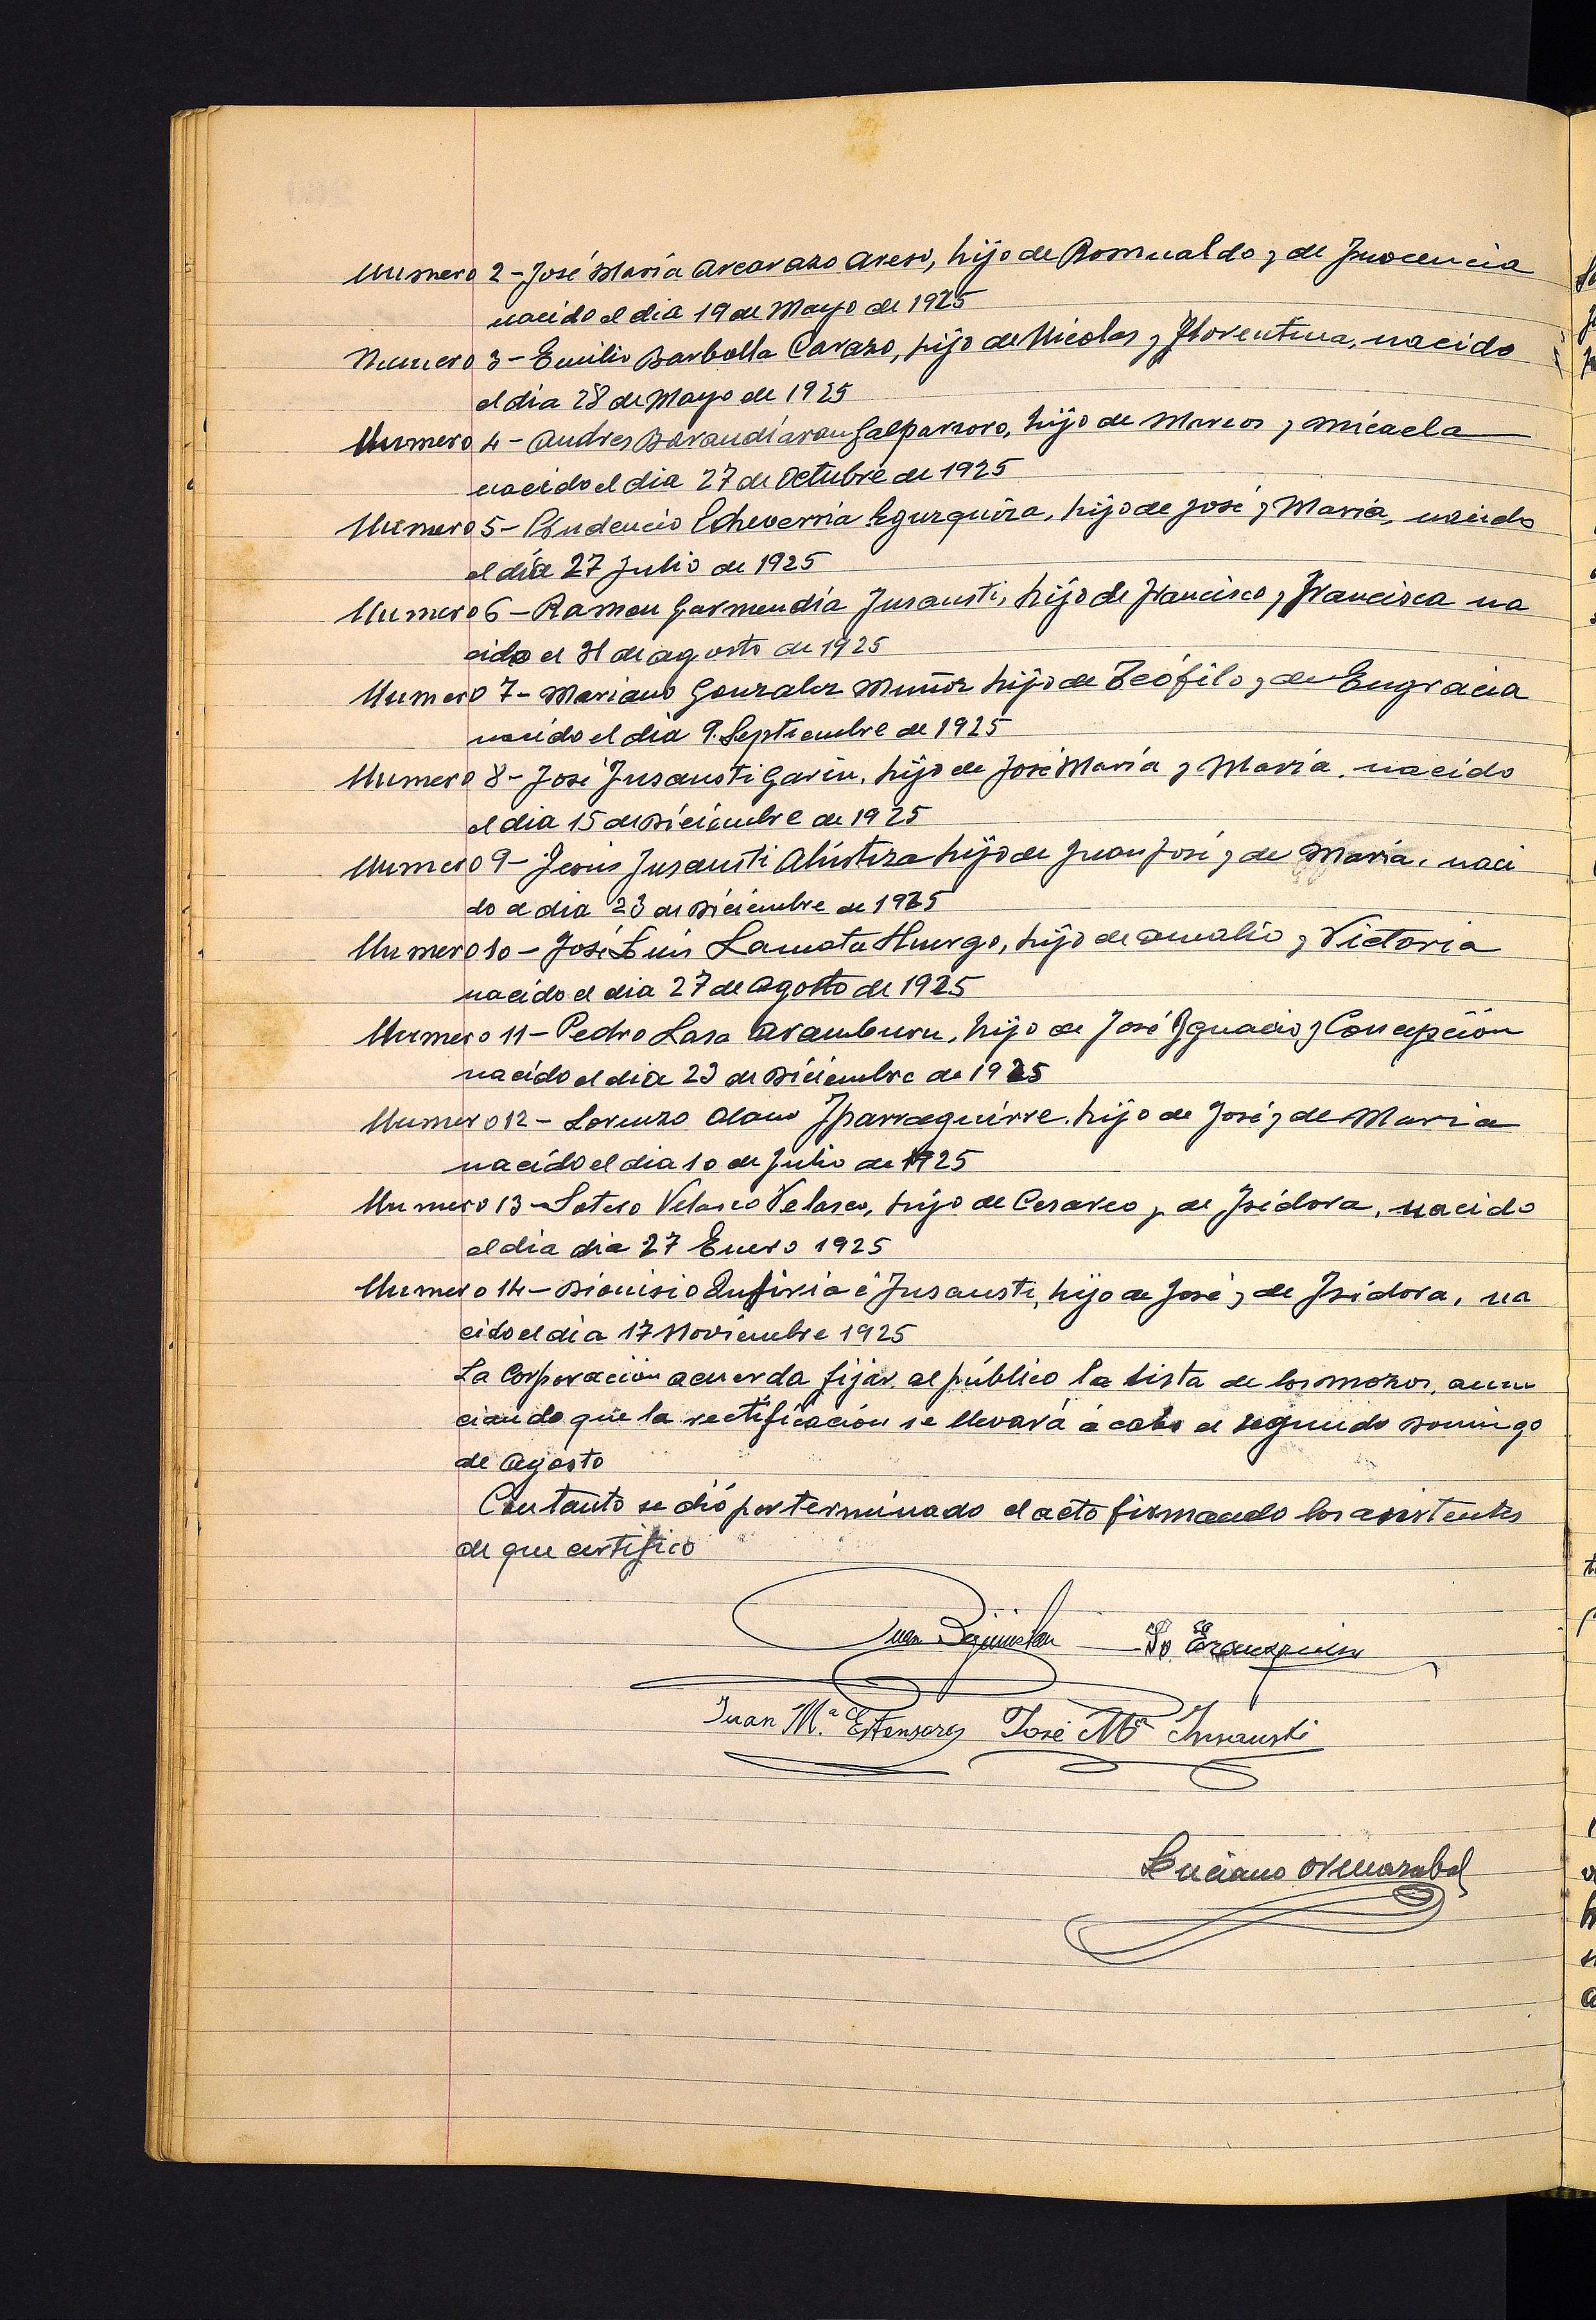 Numero 2 - José María Arcarazo Areso, hijo de Romualdo y de Inocencia
nacido el dia 19 de Mayo de 1925
Numero 3 - Emilio Barbolla Carazo, hijo de Nicolas y Florentina, nacido
el dia 28 de Mayo de 1925
Numero 4 - Andres Barandiaran Galparsoro, hijo de Marcos y Micaela
nacido el dia 27 de Octubre de 1925
Numero 5 - Prudencio Echeverria Eguzquiza, hijo de José y María, nacido
el día 27 Julio de 1925
Numero 6 - Ramon Garmendia Insausti, hijo de Francisco y Francisca na
cido el 31 de agosto de 1925
Numero 7 - Mariano Gonzalez Muñoz hijo de Teófilo y de Engracia
nacido el dia 9 Septiembre de 1925
Numero 8 - José Insausti Garin, hijo de José María y María, nacido
el dia 15 de Diciembre de 1925
Numero 9 - Jesús Insausti Alústiza hijo de Juan José y de María, naci
do el dia 23 de Diciembre de 1925
Numero 10 - José Luis Lamata Huergo, hijo de Amalio y Victoria
nacido el dia 27 de Agosto de 1925
Numero 11 - Pedro Lasa Aramburu, hijo de José Ignacio y Concepción
nacido el dia 23 de Diciembre de 1925
Numero 12 - Lorenzo Olano Iparraguirre, hijo de José y de Maria
nacido el dia 10 de Julio de 1925
Numero 13 - Sotero Velasco Velasco, hijo de Cesareo y de Isidora, nacido
el dia dia 27 Enero 1925
Numero 14 - Dionisio é Insausti, hijo de José y de Isidora, na
cido el dia 17 Noviembre 1925
La Corporación acuerda fijar al público la lista de los mozos, anun
ciando que la rectificación se llevará á cabo el segundo Domingo
de Agosto
Con tanto se dió por terminado el acto firmando los asistentes
de que certifico
Juan
Juan Mª Estensoro José Mª Insausti
Luciano